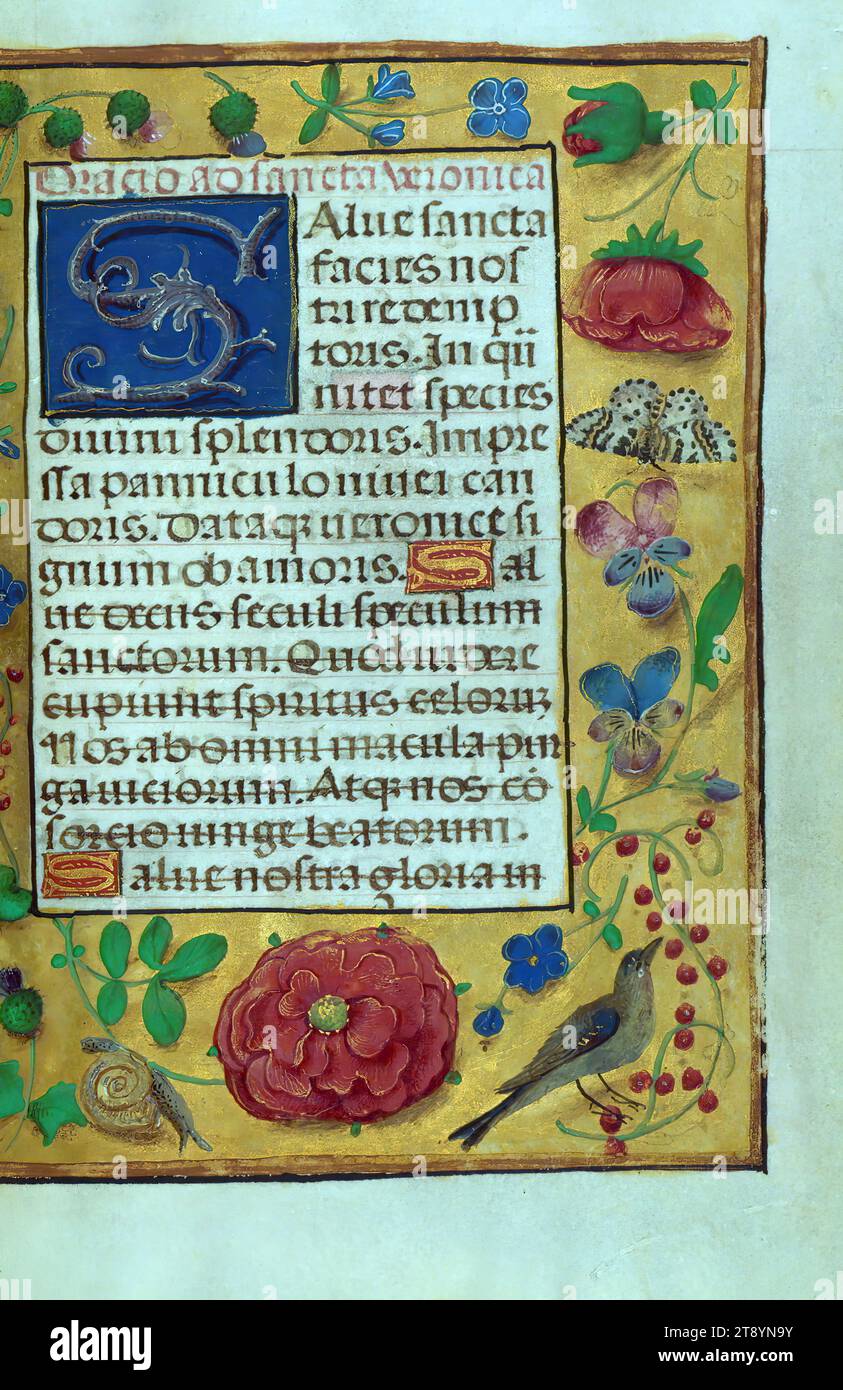 Oracio ad sancta veronica
Salue sancta
facies nos
tri redemp
toris. In qua
nitet species
diuini splendoris. Impre
ssa panniculo niuei can
doris. Dataqz ueronice si
gnum ob amoris. Sal
ue decus seculi speculum
sanctorum. Quod uidere
cupiunt spiritus celorum
Nos ab omni macula pur
ga uiciorum. Atqz nos co
sorcio iunge beatorum.
Salue nostra gloria in
alamy
Image ID: 2T8YN9Y
www.alamy.com